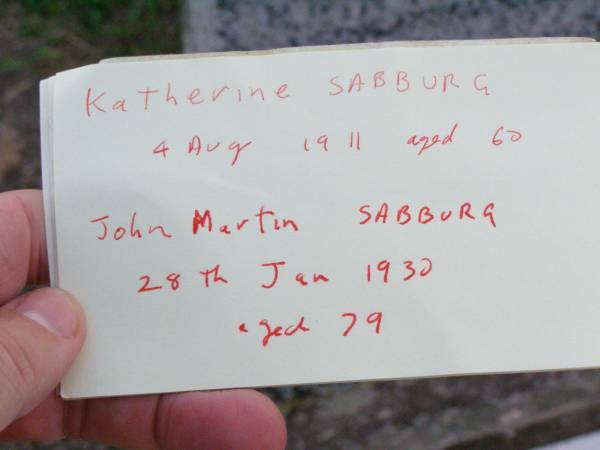 Katherine SABBURG
4 Aug 1911 aged 60
John Martin SABBURG
28th Jan 1930
aged 79